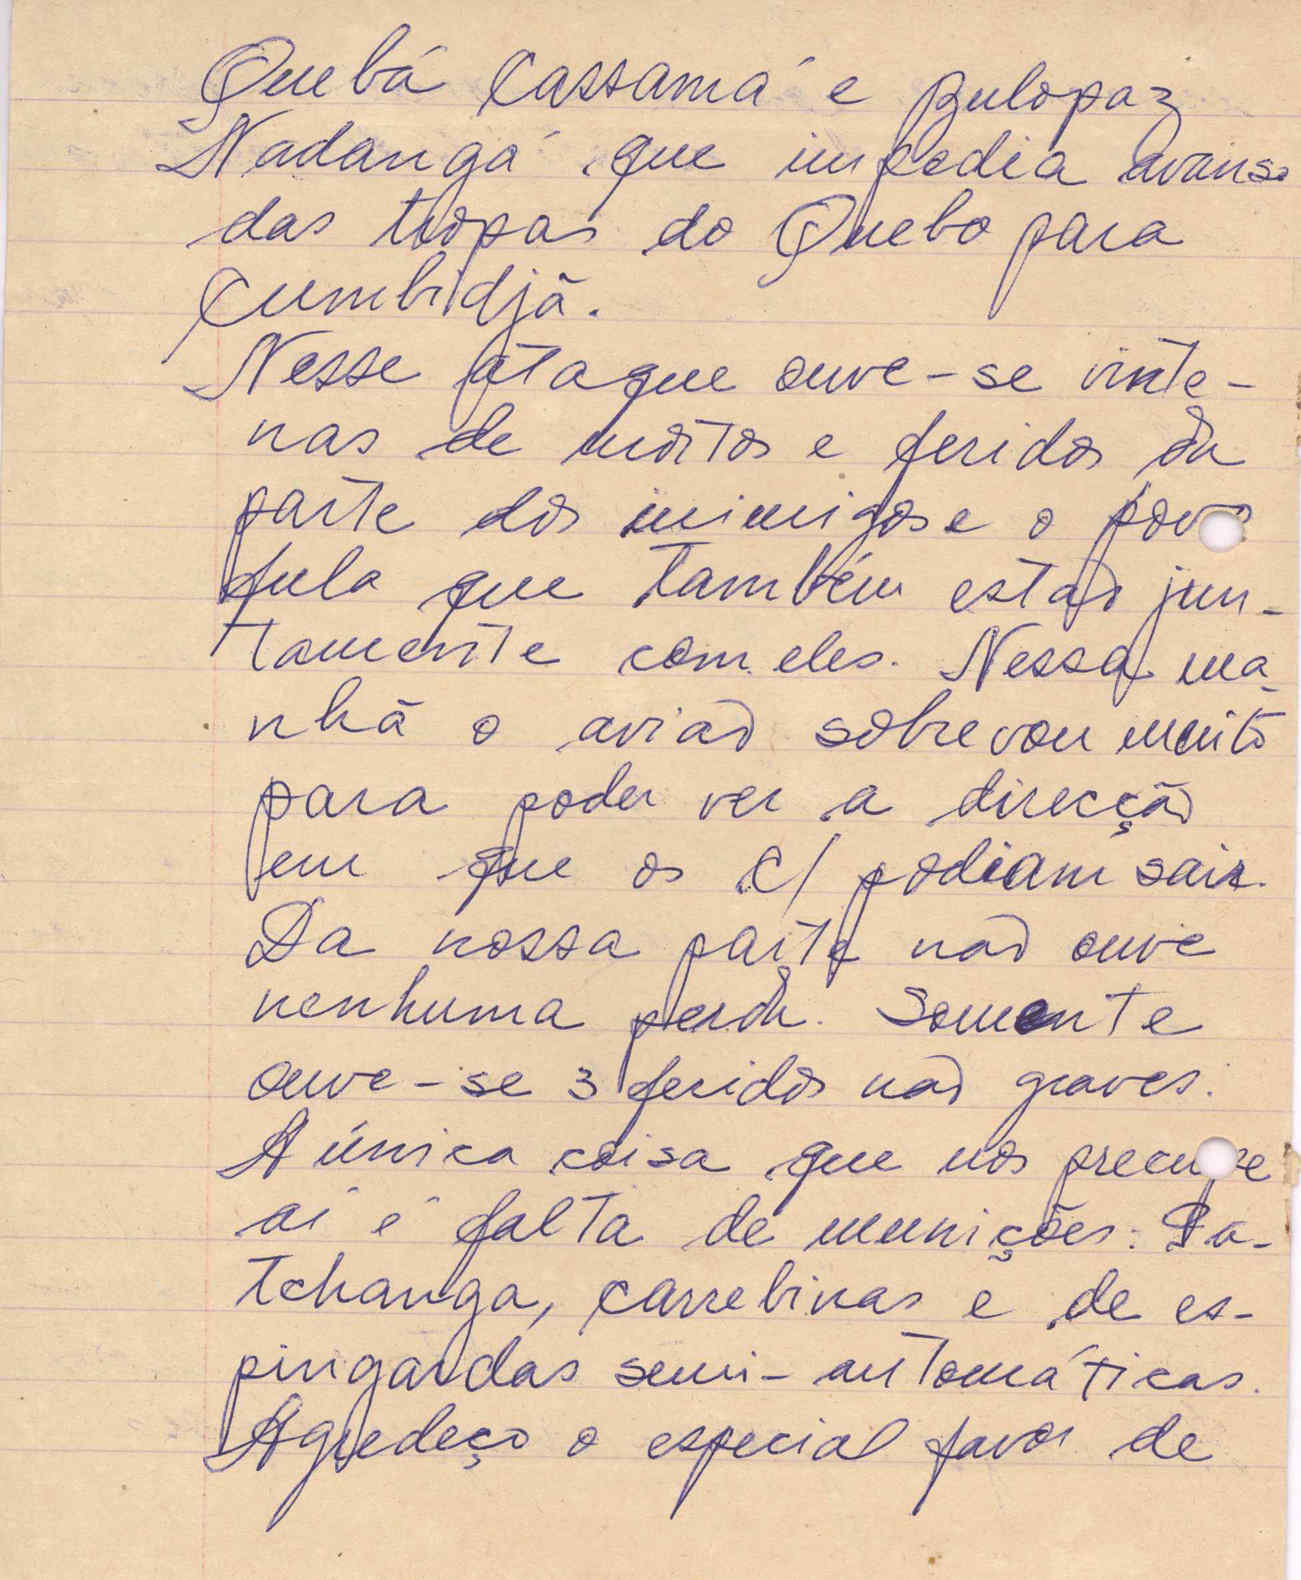 Quebá Cassamá e Bulopaz
Nadangá que impedia avanso
das tropas do Quebo para
Cumbidjã.
Nesse ataque ouve-se vinte-
nas de mortos e feridos da
parte dos inimigos e o povo
fula que também estao jun-
tamente com eles. Nessa ma-
nhã o aviao sobrevou muito
para poder ver a direcção
em que os c/ podiam sair.
Da nossa parte nao ouve
nenhuma perda. Somente
ouve-se 3 feridos nao graves.
A única coisa que nos precupe
ai é falta de munições: Pa-
tchanga, carrebinas e de es-
pingardas semi-automáticas.
Agredeço o especial favor de